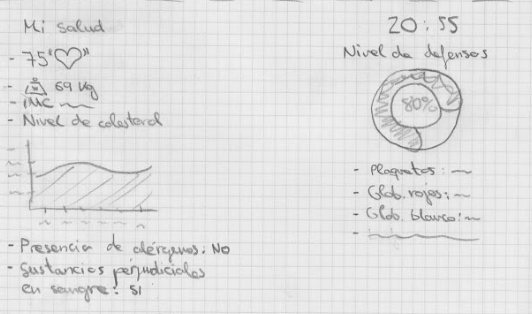 Mi salud
- 75 "♡"
- 69 Kg
- IMC
- Nivel de colesterol
- Presencia de alérgenos: NO
- Sustancias perjudiciales
en sangre: SI
20:55
Nivel de defensas
80%
- Plaquetas:
- Glob. rojos:
- Glob. blanco: